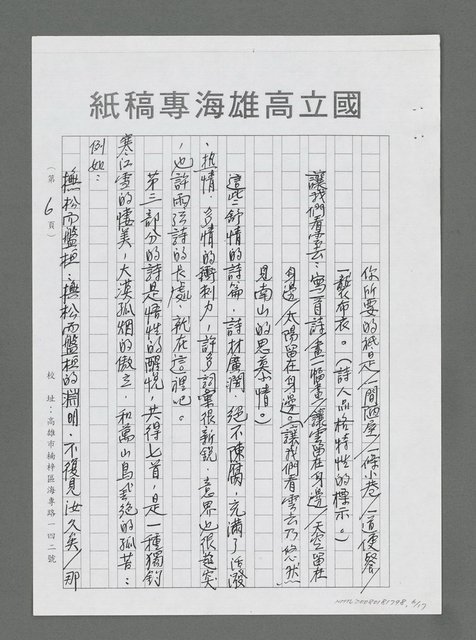 國立高雄海專稿紙
你所要的祇是/一間陋屋/一條小巷/一道便餐/
一襲布衣。(詩人品格特性的標示。)
讓我們看雲去:寫一首詩/畫一幅畫/讓雲留在身邊/天空留在
身邊/太陽留在身邊。(讓我們看雲去乃悠然
見南山的思慕情。)
這些舒情的詩篇,詩材廣闊,絕不陳腐,充滿了活潑
、熱情、多情的衝刺力,許多詞彙很新銳,意界也很超突
,也許雨弦詩的長處,就在這裡吧。
第三部分的詩是悟性的醒悅,共得七首,是一種獨釣
寒江雪的悽美,大漠孤烟的傲立,和萬山鳥飛絕的孤苦:
例如:
撫松而盤桓:撫松而盤桓的淵明,不復見汝久矣/那
(第 6 頁)
校 址:高雄市楠梓區海專路一四二號
6/17